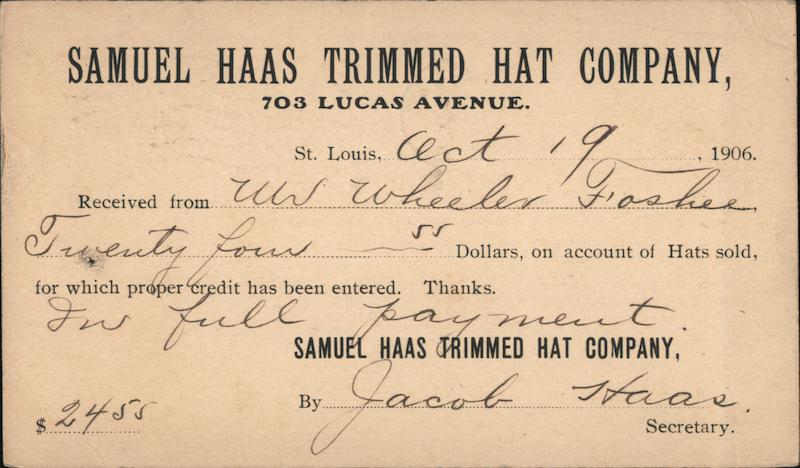 SAMUEL HAAS TRIMMED HAT COMPANY,
703 LUCAS AVENUE.
St. Louis, Oct 19, 1906.
Received from Mr Wheeler Foshee
Twenty four 55 Dollars, on account of Hats sold,
for which proper credit has been entered. Thanks.
In full payment.
SAMUEL HAAS TRIMMED HAT COMPANY,
By Jacob Haas.
$ 24 55 Secretary.